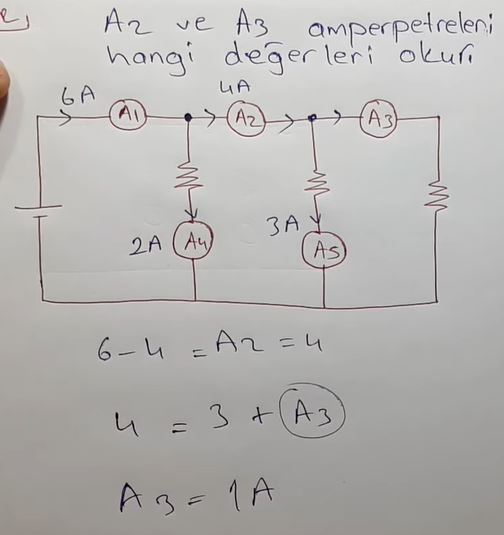 A2 ve A3 amperpetreleri
hangi değerleri okur?
6A
4A
A1
A2
A3
2A
A4
3A
A5
6-4 = A2 = 4
4 = 3 + A3
A3 = 1A